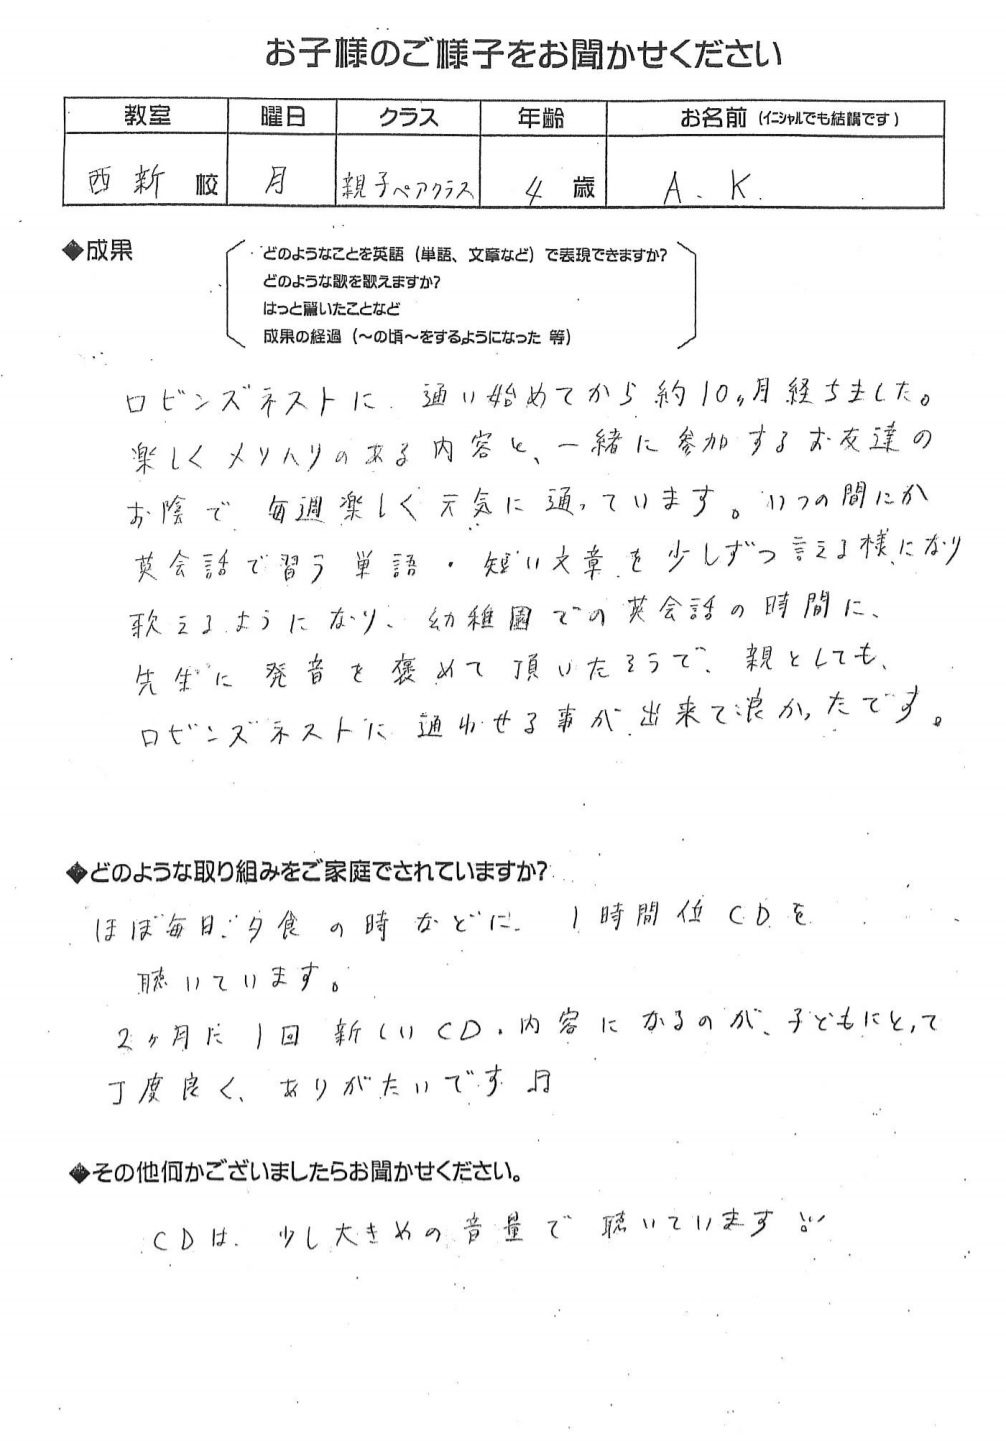 お子様のご様子をお聞かせください
教室 曜日 クラス 年齢 お名前 (イニシャルでも結構です)
西新 校 月 親子ペアクラス 4 歳 A.K.
◆成果
どのようなことを英語（単語、文章など）で表現できますか?
どのような歌を歌えますか?
はっと驚いたことなど
成果の経過（～の頃～をするようになった 等）
ロビンズネストに 通い始めてから約10ヶ月経ちました。
楽しくメリハリのある内容と、一緒に参加するお友達の
お陰で 毎週楽しく元気に通っています。いつの間にか
英会話で習う単語・短い文章を少しずつ言える様になり
歌えるようになり、幼稚園での英会話の時間に、
先生に発音を褒めて頂いたそうで、親としても、
ロビンズネストに通わせる事が出来て良かったです。
◆どのような取り組みをご家庭でされていますか?
ほぼ毎日、夕食の時などに、1時間位CDを
聴いています。
2ヶ月に1回新しいCD・内容になるのが、子どもにとって
丁度良く、ありがたいです♫
◆その他何かございましたらお聞かせください。
CDは、少し大きめの音量で聴いています